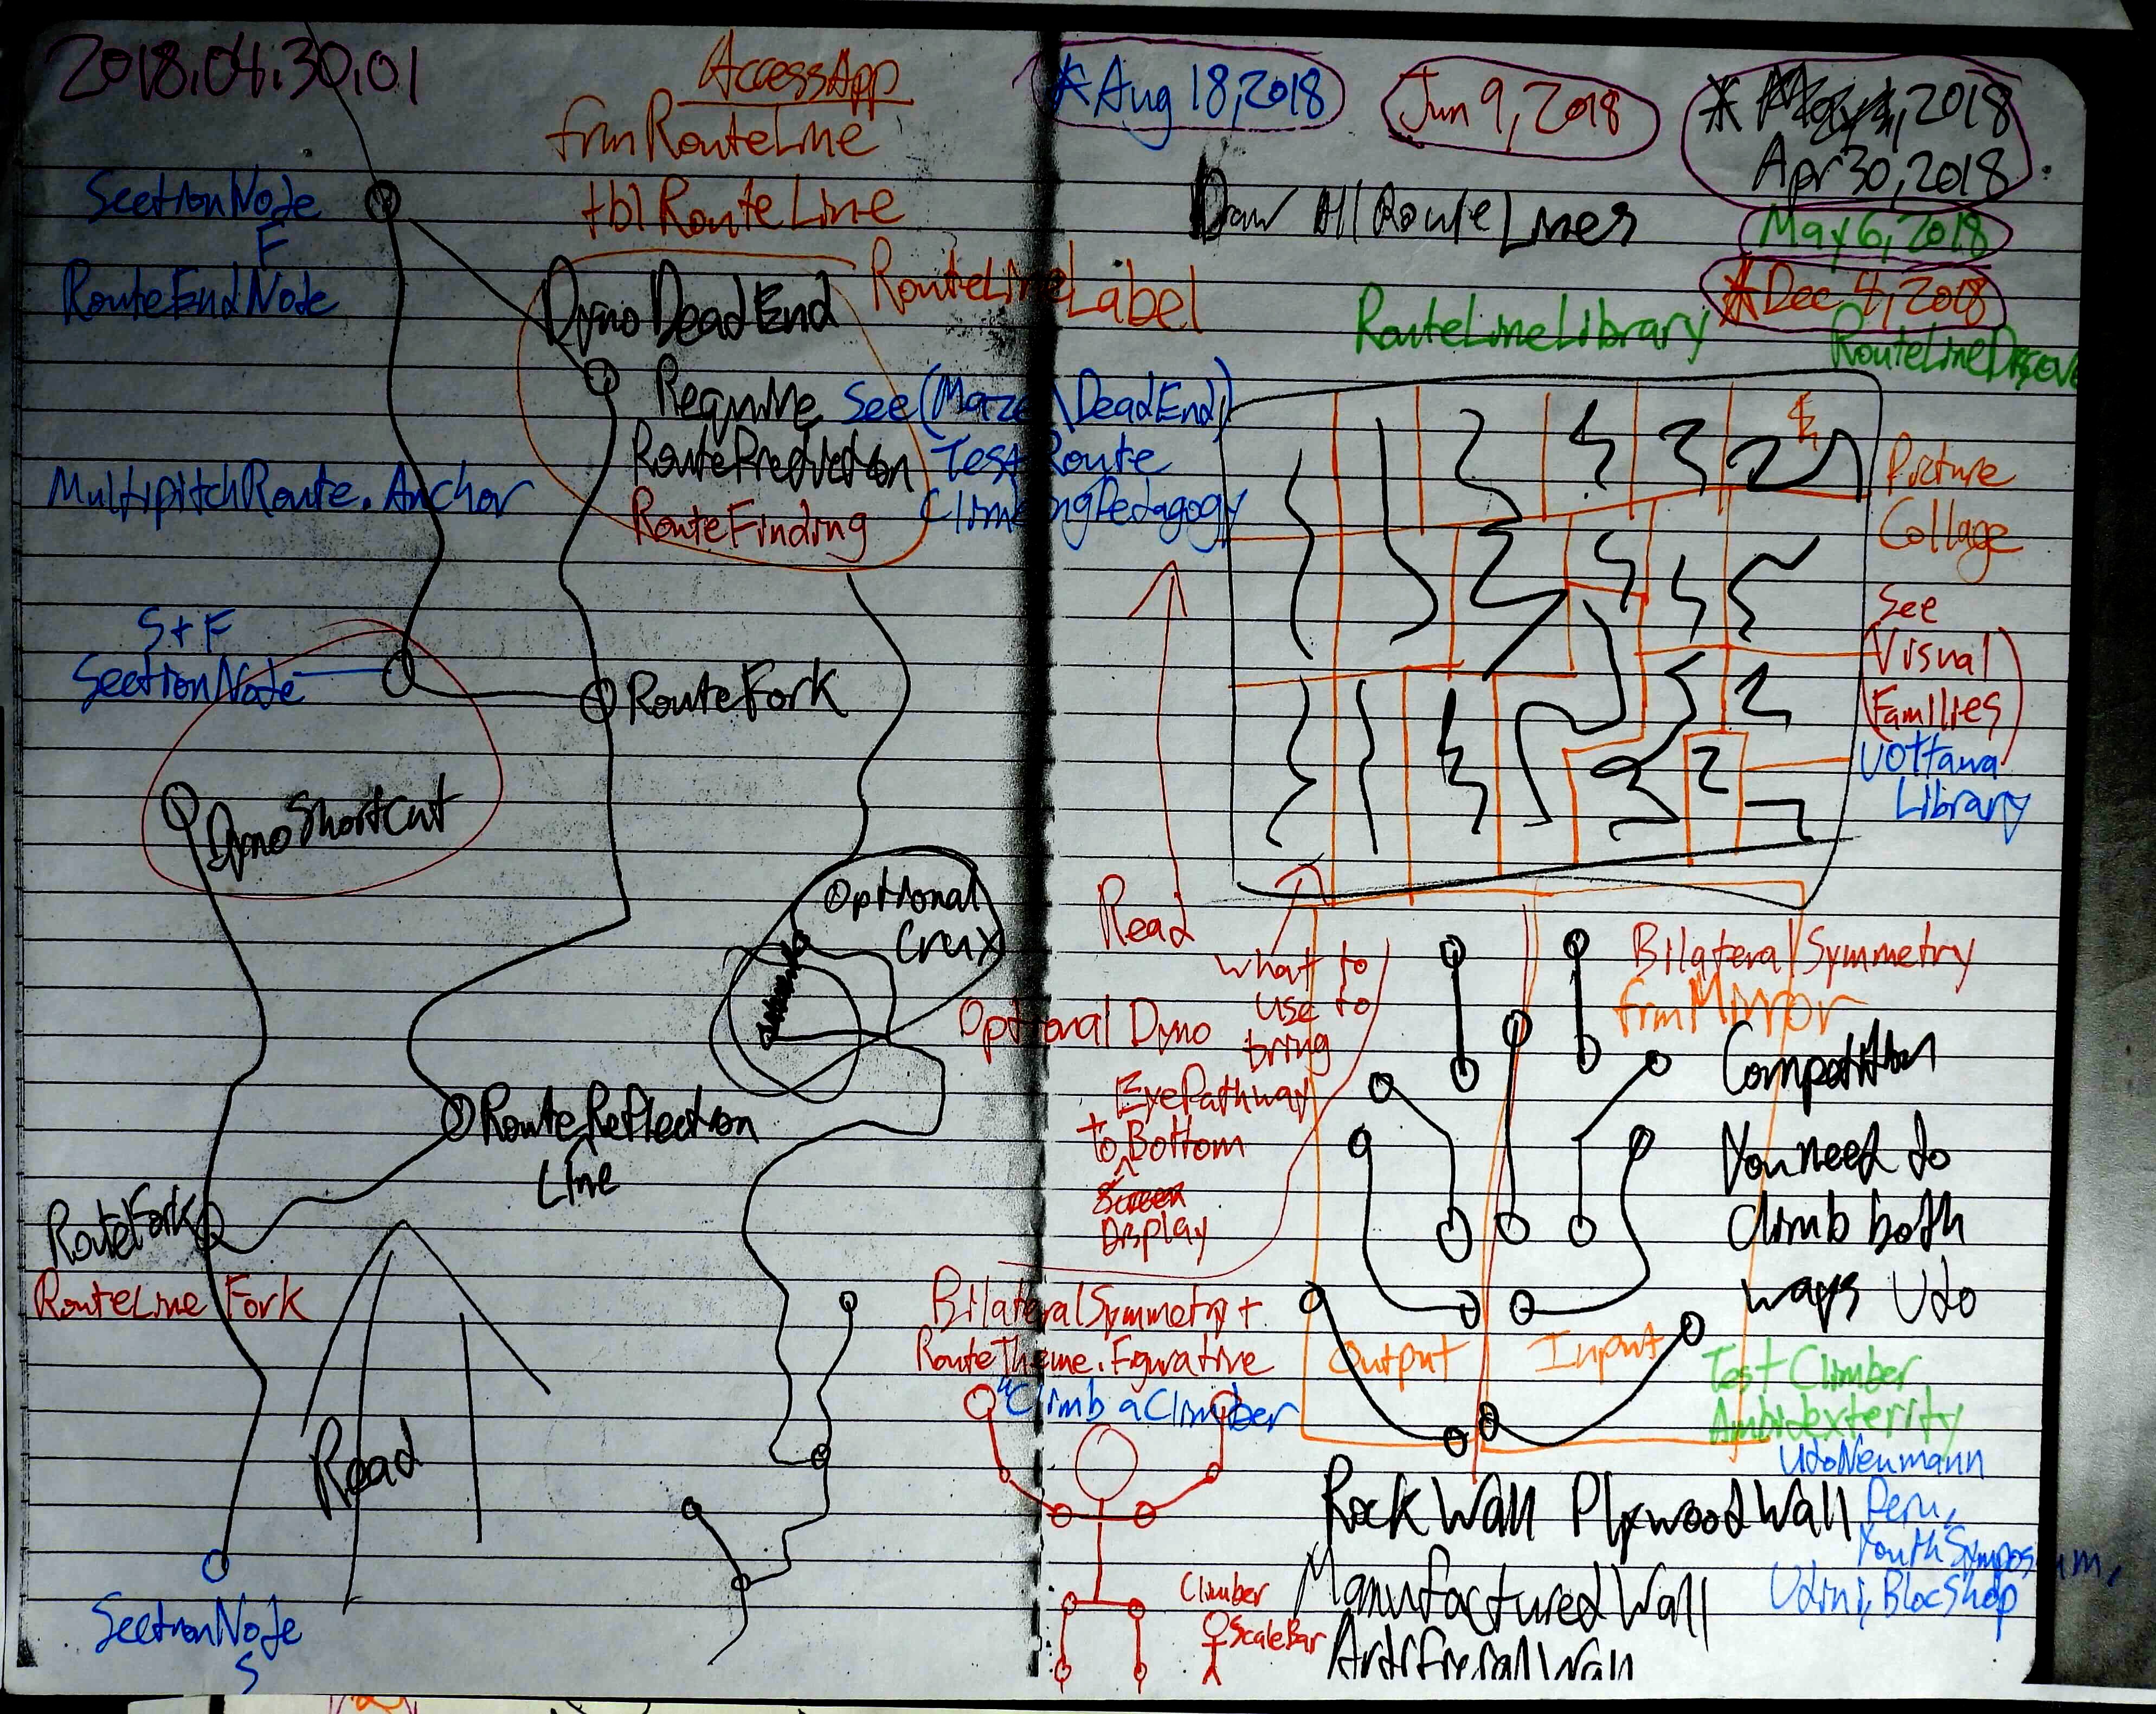 2018.04.30.01
AccessApp
frmRouteLine
tblRouteLine
RouteLineLabel
SectionNode
F
RouteEndNode
DynoDeadEnd
Require
RoutePrediction
RouteFinding
See (Maze\DeadEnd)
TestRoute
ClimbingPedagogy
MultipitchRoute.Anchor
S+F
SectionNode
RouteFork
DynoShortcut
Optional
Crux
Optional Dyno
RouteReflection
Line
RouteFork
RouteLine Fork
Read
SectionNode
S
*Aug 18, 2018
Jun 9, 2018
Apr 30, 2018
May 6, 2018
*Dec 4, 2018
Draw All Route Lines
RouteLineLibrary
Picture
Collage
See
(Visual
Families)
UOttawa
Library
Read
What to
use to
bring
EyePathway
to Bottom
Display
BilateralSymmetry
frmMirror
Competition
You need to
climb both
ways Udo
Output
Input
Test Climber
Ambidexterity
UdoNeumann
Peru,
YouthSymposium,
Udini, BlocShop
BilateralSymmetry +
RouteTheme.Figurative
"Climb a Climber
Climber
ScaleBar
Rock Wall PlywoodWall
ManufacturedWall
ArtificialWall